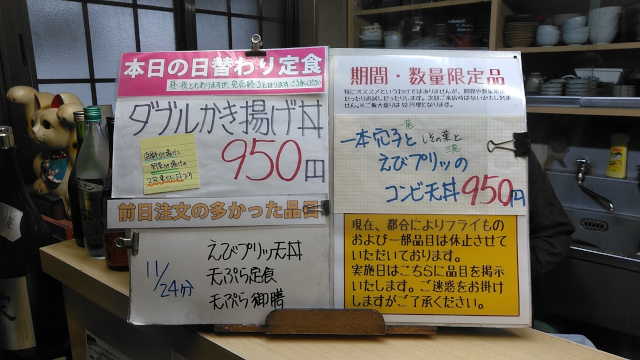 本日の日替わり定食
ダブルかき揚げ丼
950円
前日注文の多かった品目
11/24分
えびプリッ天丼
天ぷら定食
天ぷら御膳
期間・数量限定品
一本穴子と しその葉と、
えびプリッの
コンビ天丼 950円
現在、都合によりフライもの
および一部品目は休止させて
いただいております。
実施日はこちらに品目を掲示
いたします。ご迷惑をお掛け
しますがご了承ください。